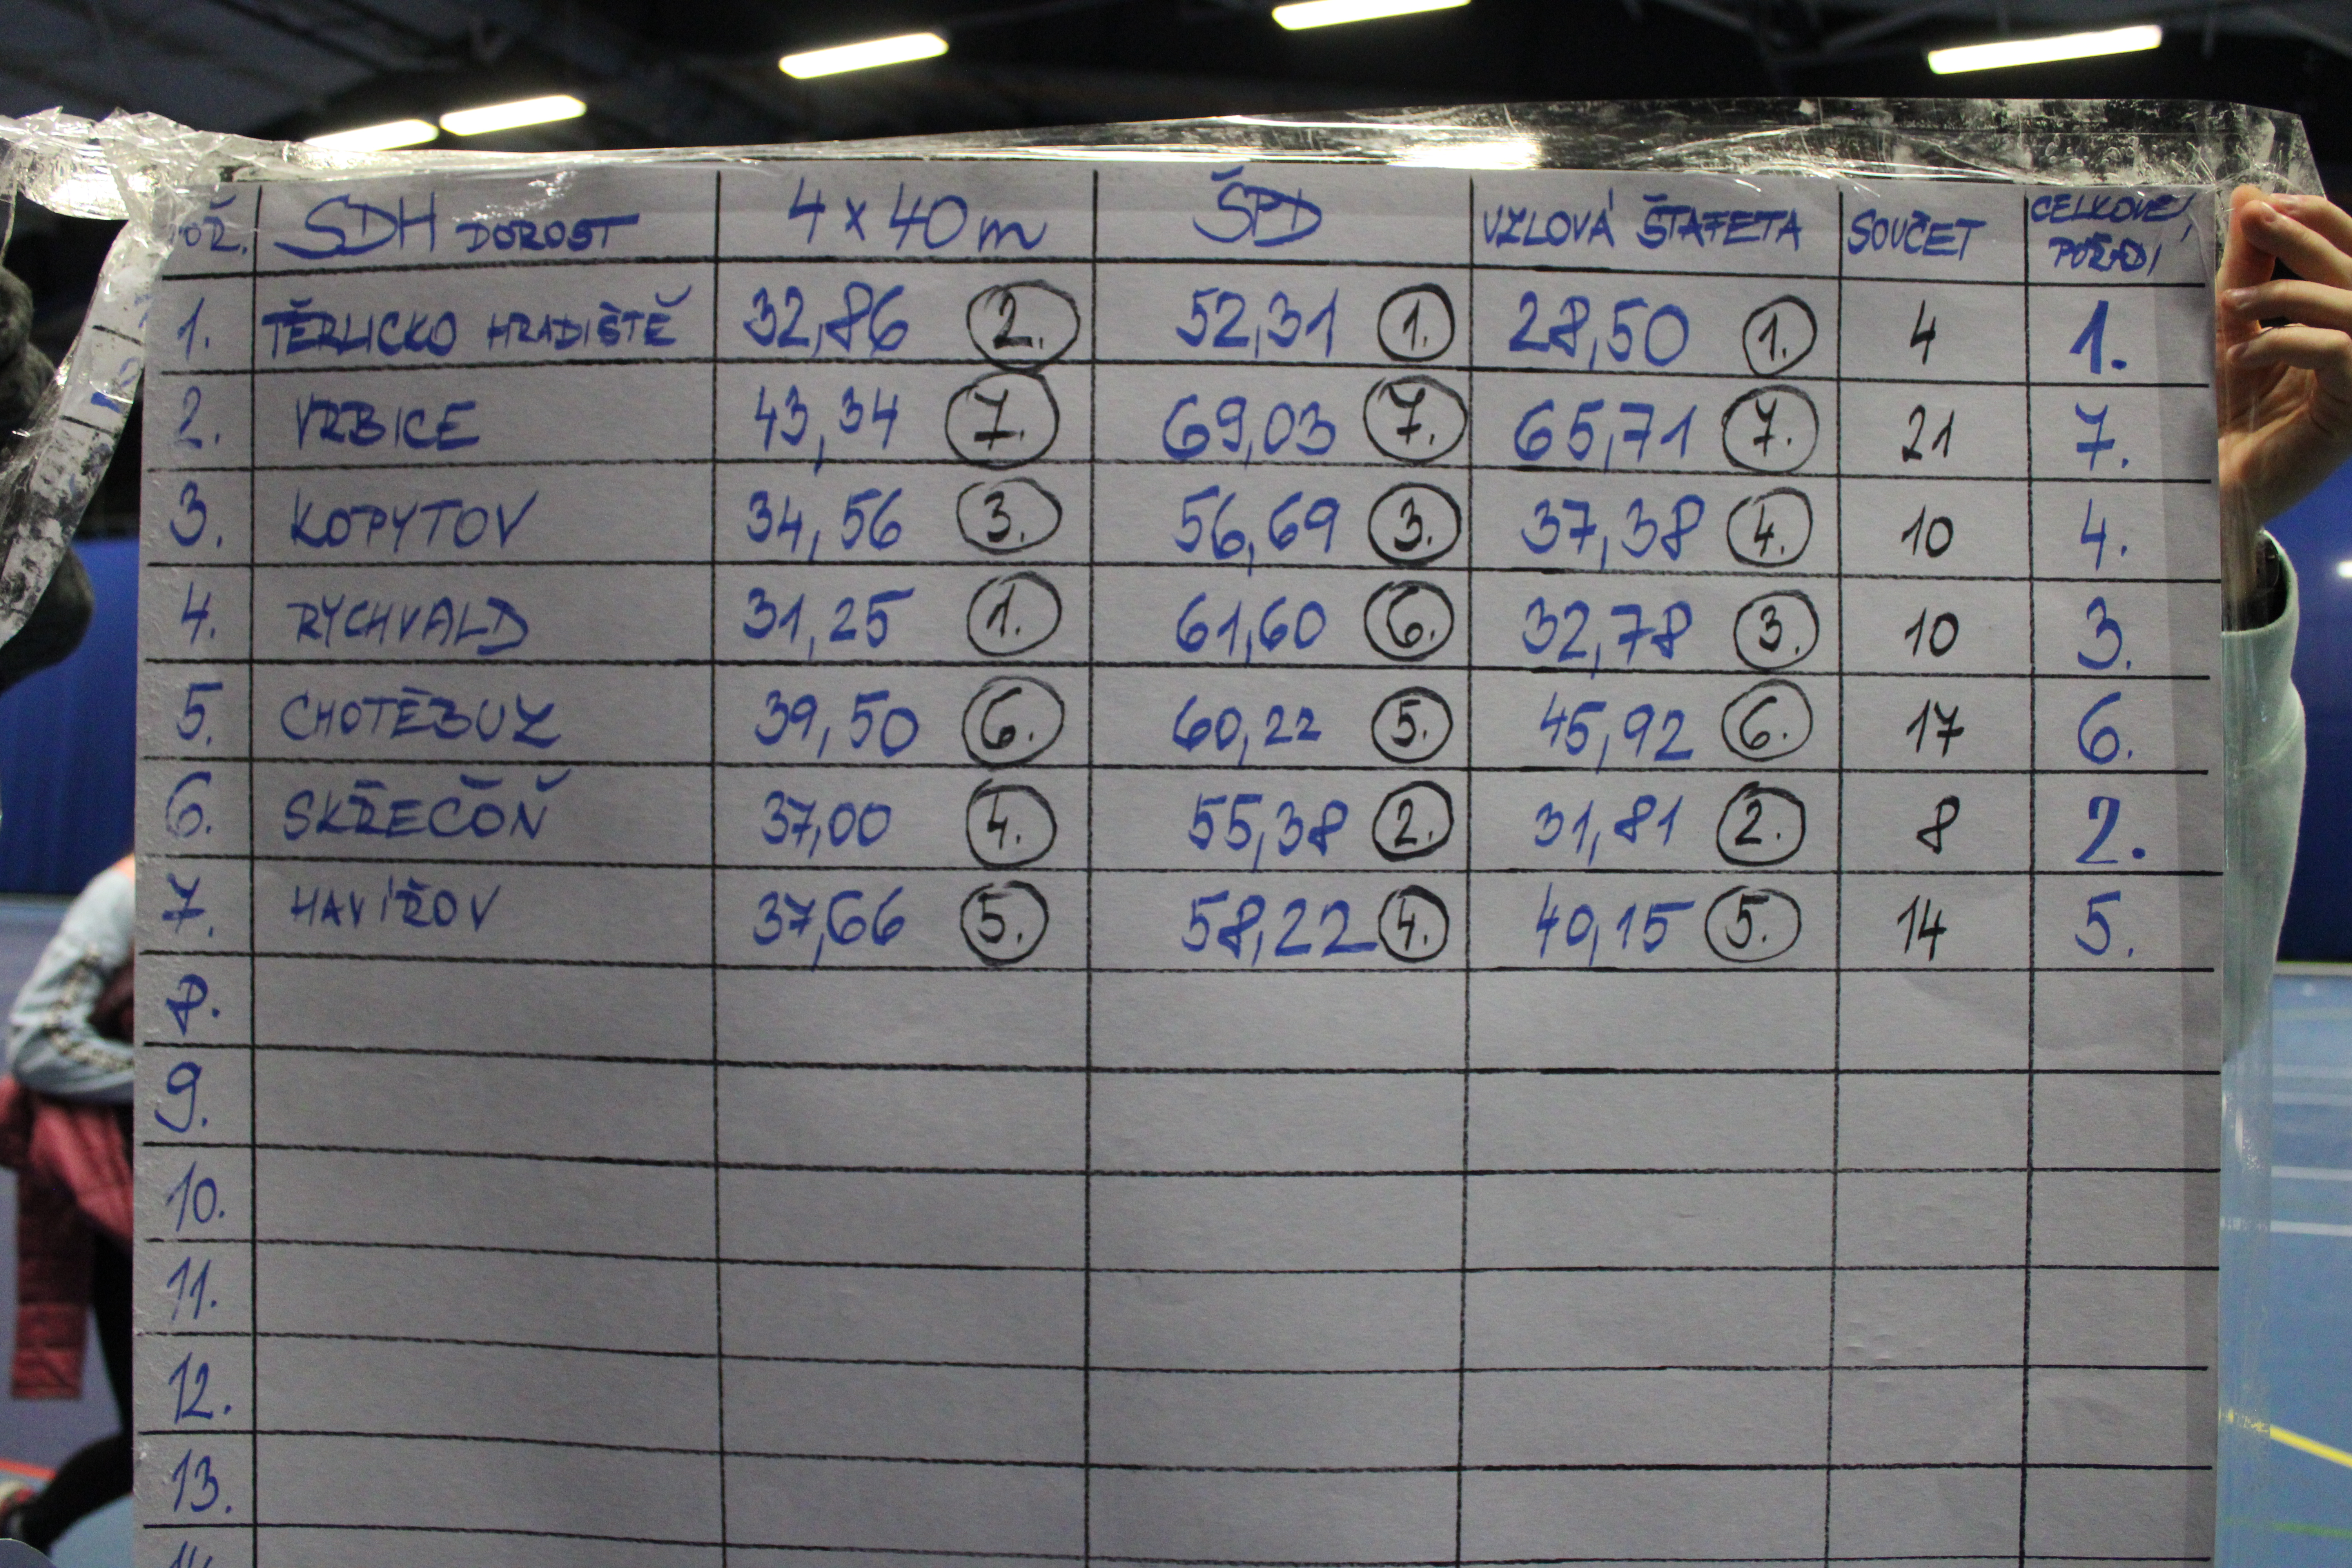 OŘ. SDH DOROST 4 x 40 m ŠPD UZLOVÁ ŠTAFETA SOUČET CELKOVÉ POŘADÍ
1. TĚRLICKO HRADIŠTĚ 32,86 2. 52,31 1. 28,50 1. 4 1.
2. VRBICE 43,34 7. 69,03 7. 65,71 7. 21 7.
3. KOPYTOV 34,56 3. 56,69 3. 37,38 4. 10 4.
4. RYCHVALD 31,25 1. 61,60 6. 32,78 3. 10 3.
5. CHOTĚBUZ 39,50 6. 60,22 5. 45,92 6. 17 6.
6. SKŘEČOŇ 37,00 4. 55,38 2. 31,81 2. 8 2.
7. HAVÍŘOV 37,66 5. 58,22 4. 40,15 5. 14 5.
8.
9.
10.
11.
12.
13.